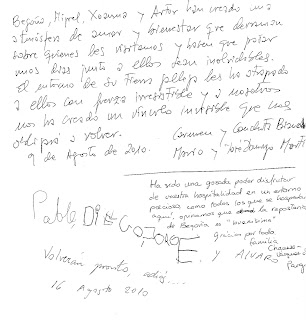 Begoña, Miguel, Xoana y Artur han creado una
atmósfera de amor y bienestar que derraman
sobre quienes los visitamos y hacen que pasar
unos días junto a ellos sean inolvidables.
El entorno de su tierra les ha atrapado
a ellos con fuerza irresistible y a nosotros
nos ha creado un vínculo invisible que nos
obligará a volver.
Carmen y Conchita
9 de Agosto de 2010.
Mario y José
Ha sido una gozada poder disfrutar
de vuestra hospitalidad en un entorno
precioso como todos los que se hospedan
aquí, opinamos que la repostería
de Begoña es "buenísima"
Gracias por todo.
Familia
Pablo DIEGO JORGE. Y ALVARO
Volverán pronto, adiós...
16 Agosto 2010